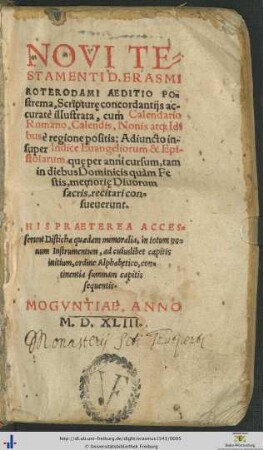 NOVI TE-
STAMENTI D. ERASMI
ROTERODAMI AEDITIO PO-
strema, Scripturę concordantijs ac-
curatè illustrata, cum Calendario
Romano, Calendis, Nonis atq; Idi
bus è regione positis: Adiuncto in-
super Indice Euangeliorum & Epi-
stolarum, que per anni cursum, tam
in diebus Dominicis quàm Fe
stis, memorię Diuorum
sacris, recitari con-
sueuerunt.
HIS PRAETEREA ACCES-
serunt Disticha quædam numeralia, in totum no-
uum Instrumentum, ad cuiuslibet capitis
initium, ordine Alphabetico, con-
tinentia summam capitis
sequentis.
MOGVNTIAE, ANNO
M. D. XLIII.
Monasterij Sct. Trutperti
VF
http://dl.ub.uni-freiburg.de/diglit/erasmus1543/0005
© Universitätsbibliothek Freiburg
Baden-Württemberg